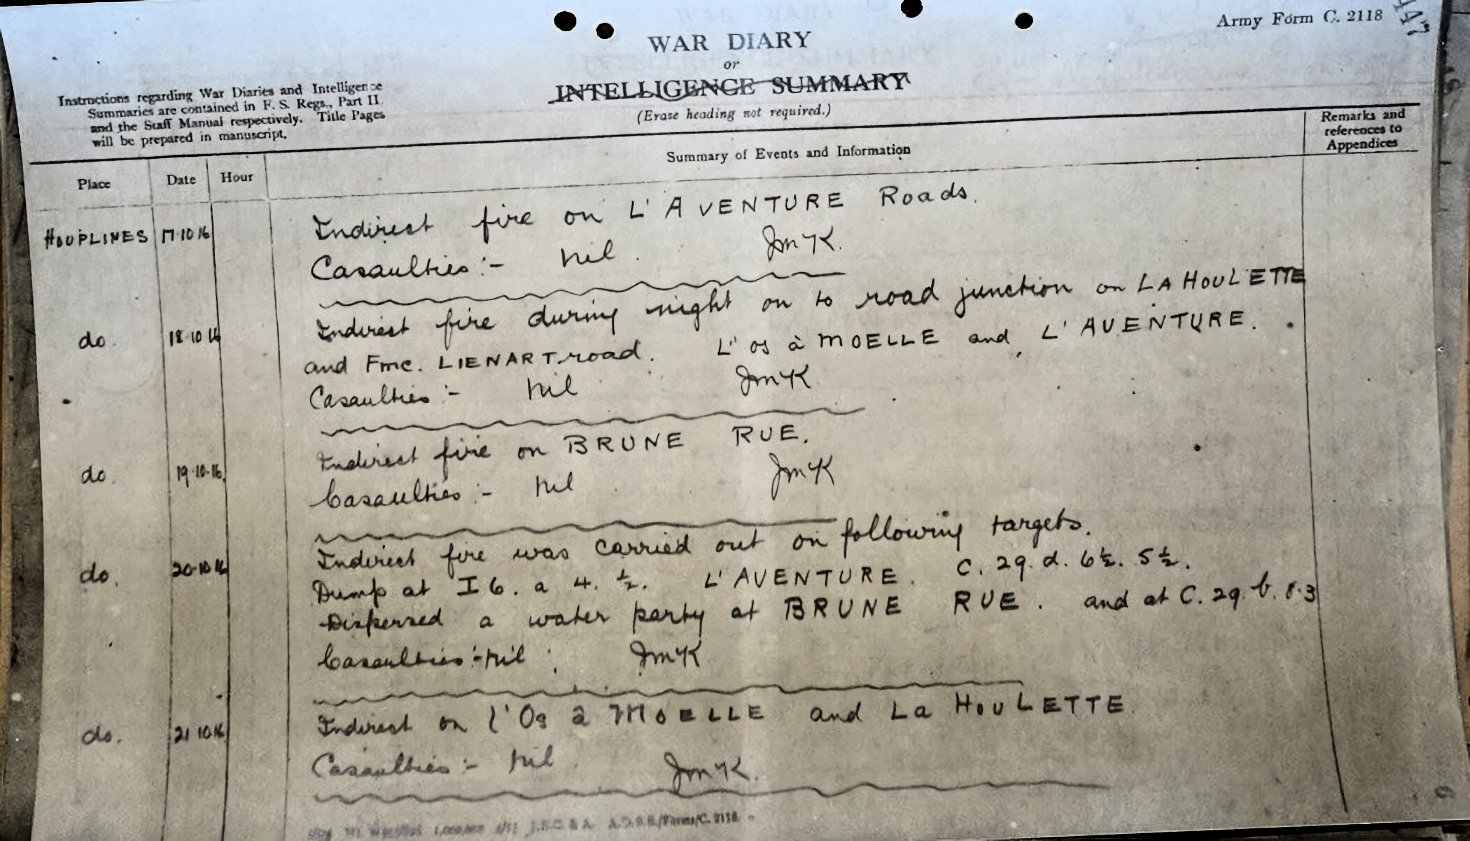 Army Form C. 2118
WAR DIARY
or
INTELLIGENCE SUMMARY
(Erase heading not required.)
Instructions regarding War Diaries and Intelligence
Summaries are contained in F. S. Regs., Part II
and the Staff Manual respectively. Title Pages
will be prepared in manuscript.
Place Date Hour Summary of Events and Information Remarks and
references to
Appendices
HOUPLINES 17.10.16 Indirect fire on L'AVENTURE Roads.
Casaulties :- Nil. JmK.
do. 18.10.16 Indirect fire during night on to road junction on LA HOULETTE
and Fme. LIENART road. L'os à MOELLE and L'AVENTURE.
Casaulties :- Nil JmK
do. 19.10.16 Indirect fire on BRUNE RUE.
Casaulties :- Nil JmK
do. 20.10.16 Indirect fire was carried out on following targets.
Dump at I 6. a 4. ½. L'AVENTURE. C. 29. d. 6½. 5½.
Dispersed a water party at BRUNE RUE. and at C. 29. b. 8.3
Casaulties :- Nil. JmK
do. 21.10.16 Indirect on l'Os à MOELLE and La HOULETTE.
Casaulties :- Nil JmK.
1,000,000 J.B.C. & A. A.D.S.S./Forms/C. 2118.